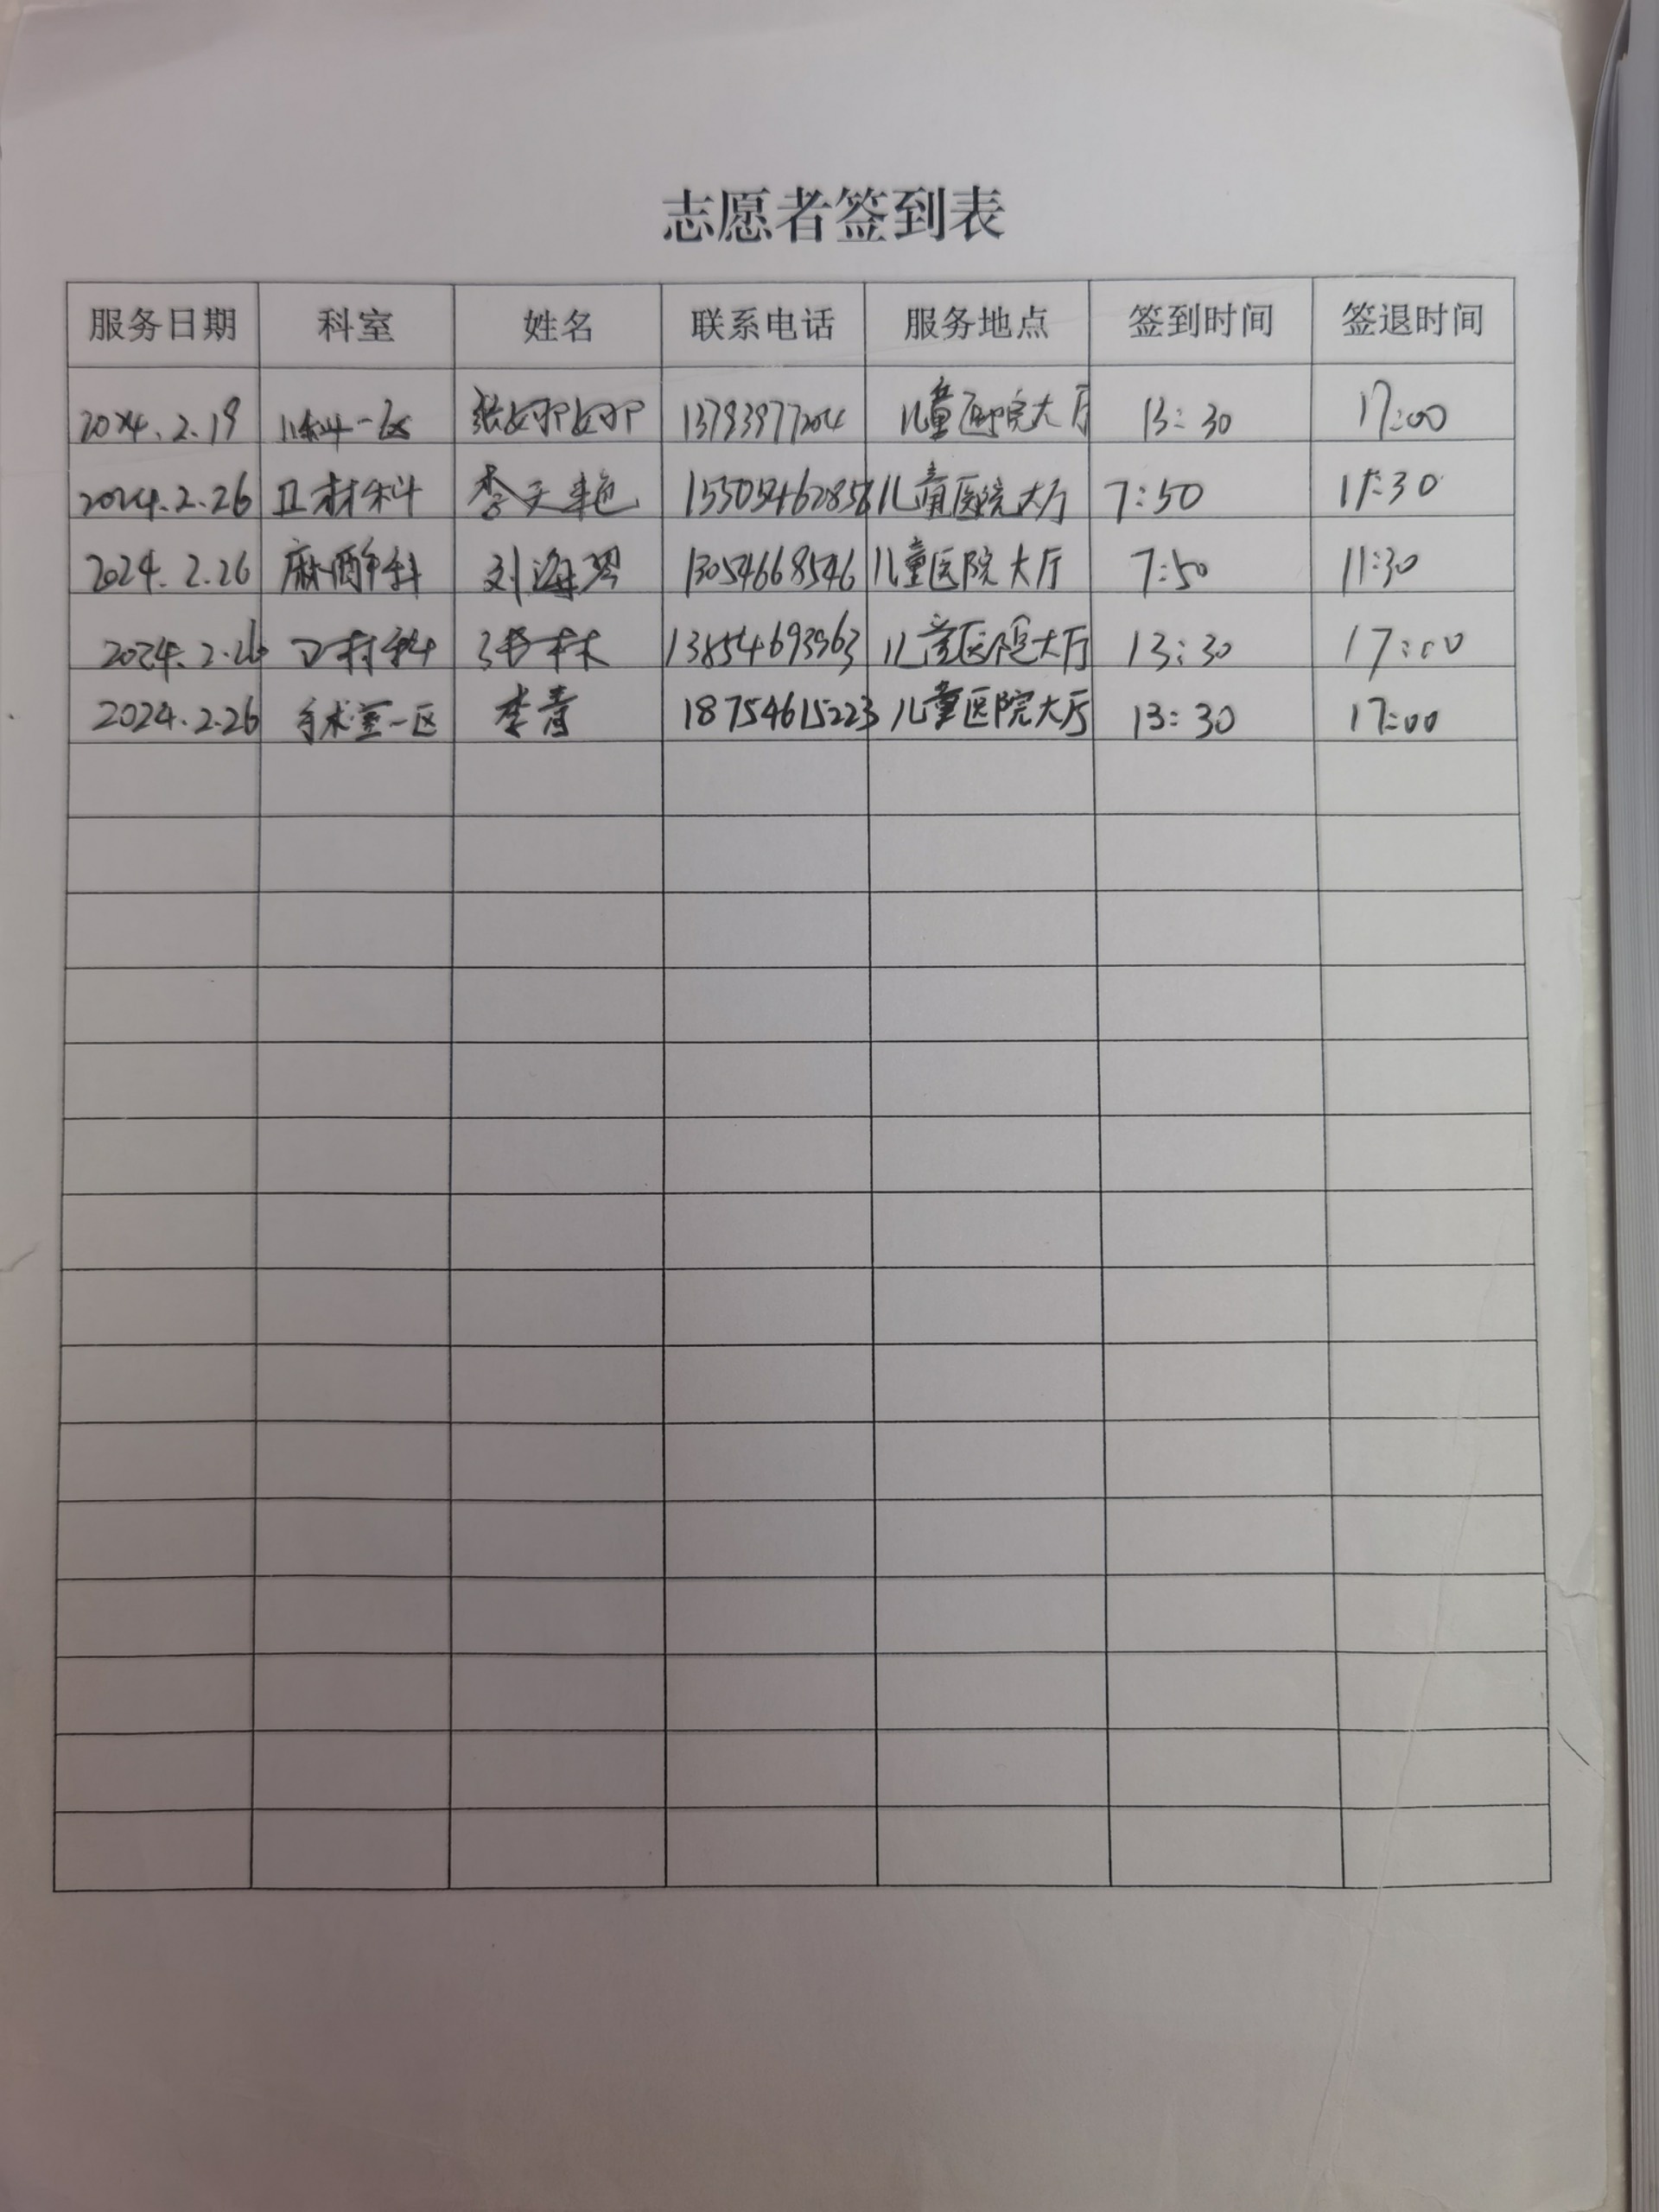 志愿者签到表
服务日期 科室 姓名 联系电话 服务地点 签到时间 签退时间
2024.2.19 儿科一区 张 13793977204 儿童医院大厅 13:30 17:00
2024.2.26 卫材科 李天艳 儿童医院大厅 7:50 11:30
2024.2.26 麻醉科 刘海 13054668546 儿童医院大厅 7:50 11:30
2024.2.26 卫材科 张林 13854693963 儿童医院大厅 13:30 17:00
2024.2.26 手术室一区 李青 18754615223 儿童医院大厅 13:30 17:00